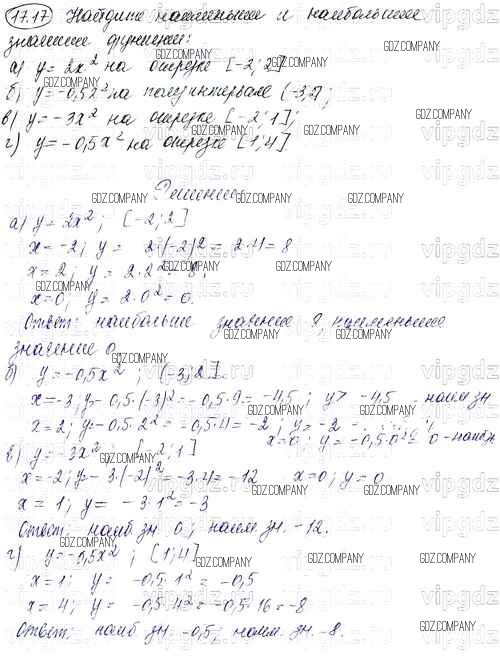 17.17 Найдите наименьшее и наибольшее
значение функции:
а) y = 2x² на отрезке [-2; 2]
б) y = -0,5x² на полуинтервале (-3;2];
в) y = -3x² на отрезке [-2; 1];
г) y = -0,5x² на отрезке [1; 4]
Решение
а) y = 2x²; [-2; 2]
x = -2; y = 2·(-2)² = 2·4 = 8
x = 2; y = 2·2² = 8;
x = 0; y = 2·0² = 0.
Ответ: наибольше значение 8, наименьшее
значение 0
б) y = -0,5x²; (-3; 2]
x = -3, y = -0,5·(-3)² = -0,5·9 = -4,5; y > -4,5 наим зн
x = 2; y = -0,5·2² = -0,5·4 = -2; y = -2
x = 0; y = -0,5·0² = 0 - наиб
в) y = -3x²; [-2; 1]
x = -2; y = -3·(-2)² = -3·4 = -12 x = 0; y = 0
x = 1; y = -3·1² = -3
Ответ: наиб зн. 0; наим зн. -12.
г) y = -0,5x²; [1; 4]
x = 1; y = -0,5·1² = -0,5
x = 4; y = -0,5·4² = -0,5·16 = -8
Ответ: наиб. зн. -0,5; наим. зн. -8.
GDZ.COMPANY
vipgdz